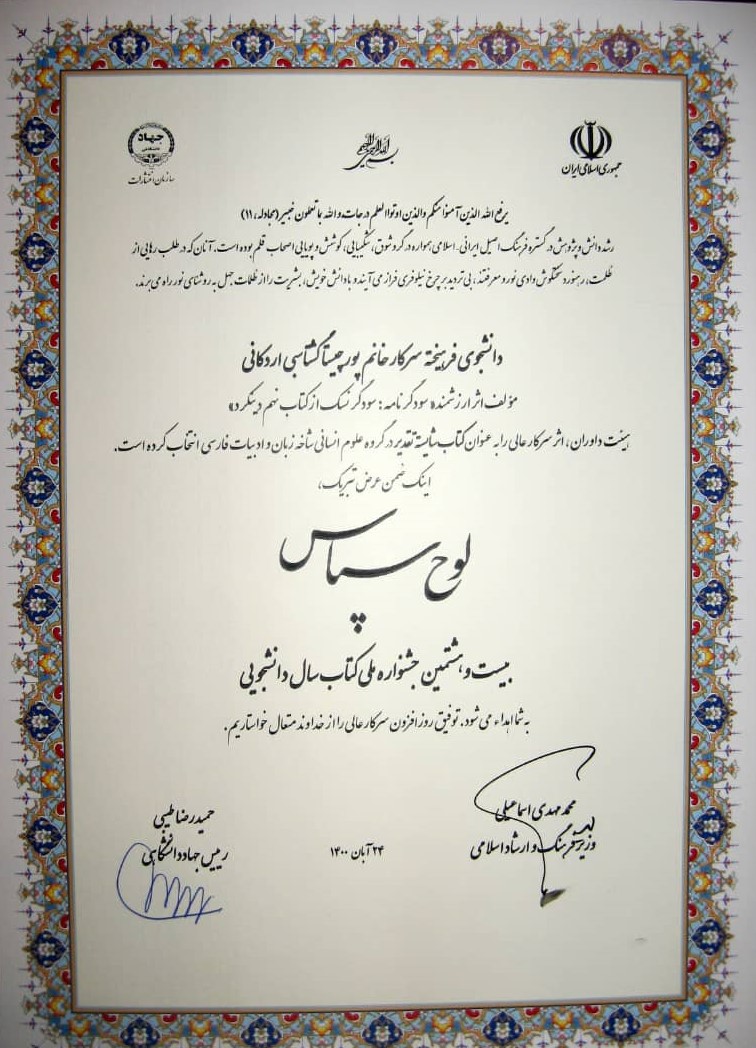 بسم الله الرحمن الرحیم
جمهوری اسلامی ایران
جهاد
دانشگاهی
سازمان انتشارات
یرفع الله الذین آمنوا منکم والذین اوتوا العلم درجات و الله بما تعملون خبیر (مجادله، ۱۱)
رشد دانش و پژوهش در گستره فرهنگ اصیل ایرانی ـ اسلامی همواره در گرو شوق، شکیبایی، کوشش و پویایی اصحاب قلم بوده است. آنان که در طلب رهایی از
ظلمت، رهنورد سختکوش وادی نور و معرفتند، بی تردید بر چرخ نیلوفری فراز می آیند و با دانش خویش، بشریت را از ظلمات جهل به روشنای نور راه می برند.
دانشجوی فرهیخته سرکار خانم پورچیستا گشتاسبی اردکانی
مؤلف اثر ارزشمند «سودگرنامه: سودگر نسک از کتاب نهم دینکرد»
هیئت داوران، اثر سرکار عالی را به عنوان کتاب شایسته تقدیر در گروه علوم انسانی شاخه زبان و ادبیات فارسی انتخاب کرده است.
اینک ضمن عرض تبریک،
لوح سپاس
بیست و هشتمین جشنواره ملی کتاب سال دانشجویی
به شما اهداء می شود. توفیق روزافزون سرکار عالی را از خداوند متعال خواستاریم.
محمد مهدی اسماعیلی
وزیر فرهنگ و ارشاد اسلامی
۲۴ آبان ۱۴۰۰
حمیدرضا طیبی
رییس جهاد دانشگاهی